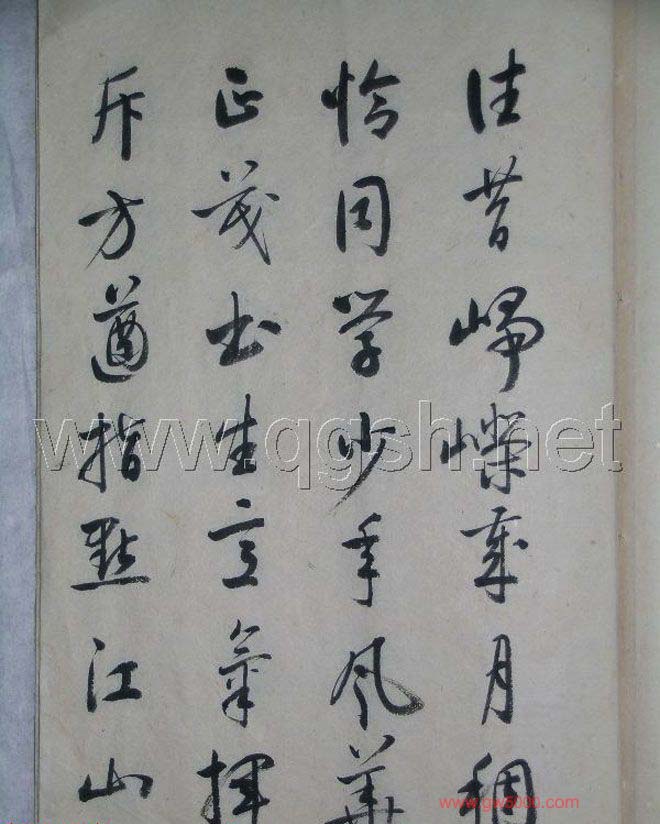 往昔峥嵘岁月稠
恰同学少年风華
正茂书生意氣揮
斥方遒指點江山
www.qgsh.net
www.gw8000.com